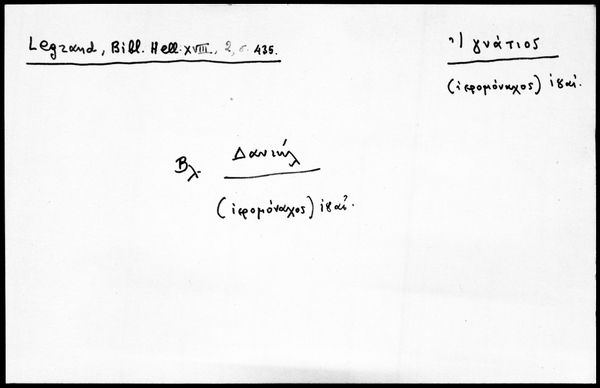 Legrand, Bibl. Hell. XVIII, 2, σ. 435.
Ἰγνάτιος
(ἱερομόναχος)
Βλ. Δανιήλ
(ἱερομόναχος)